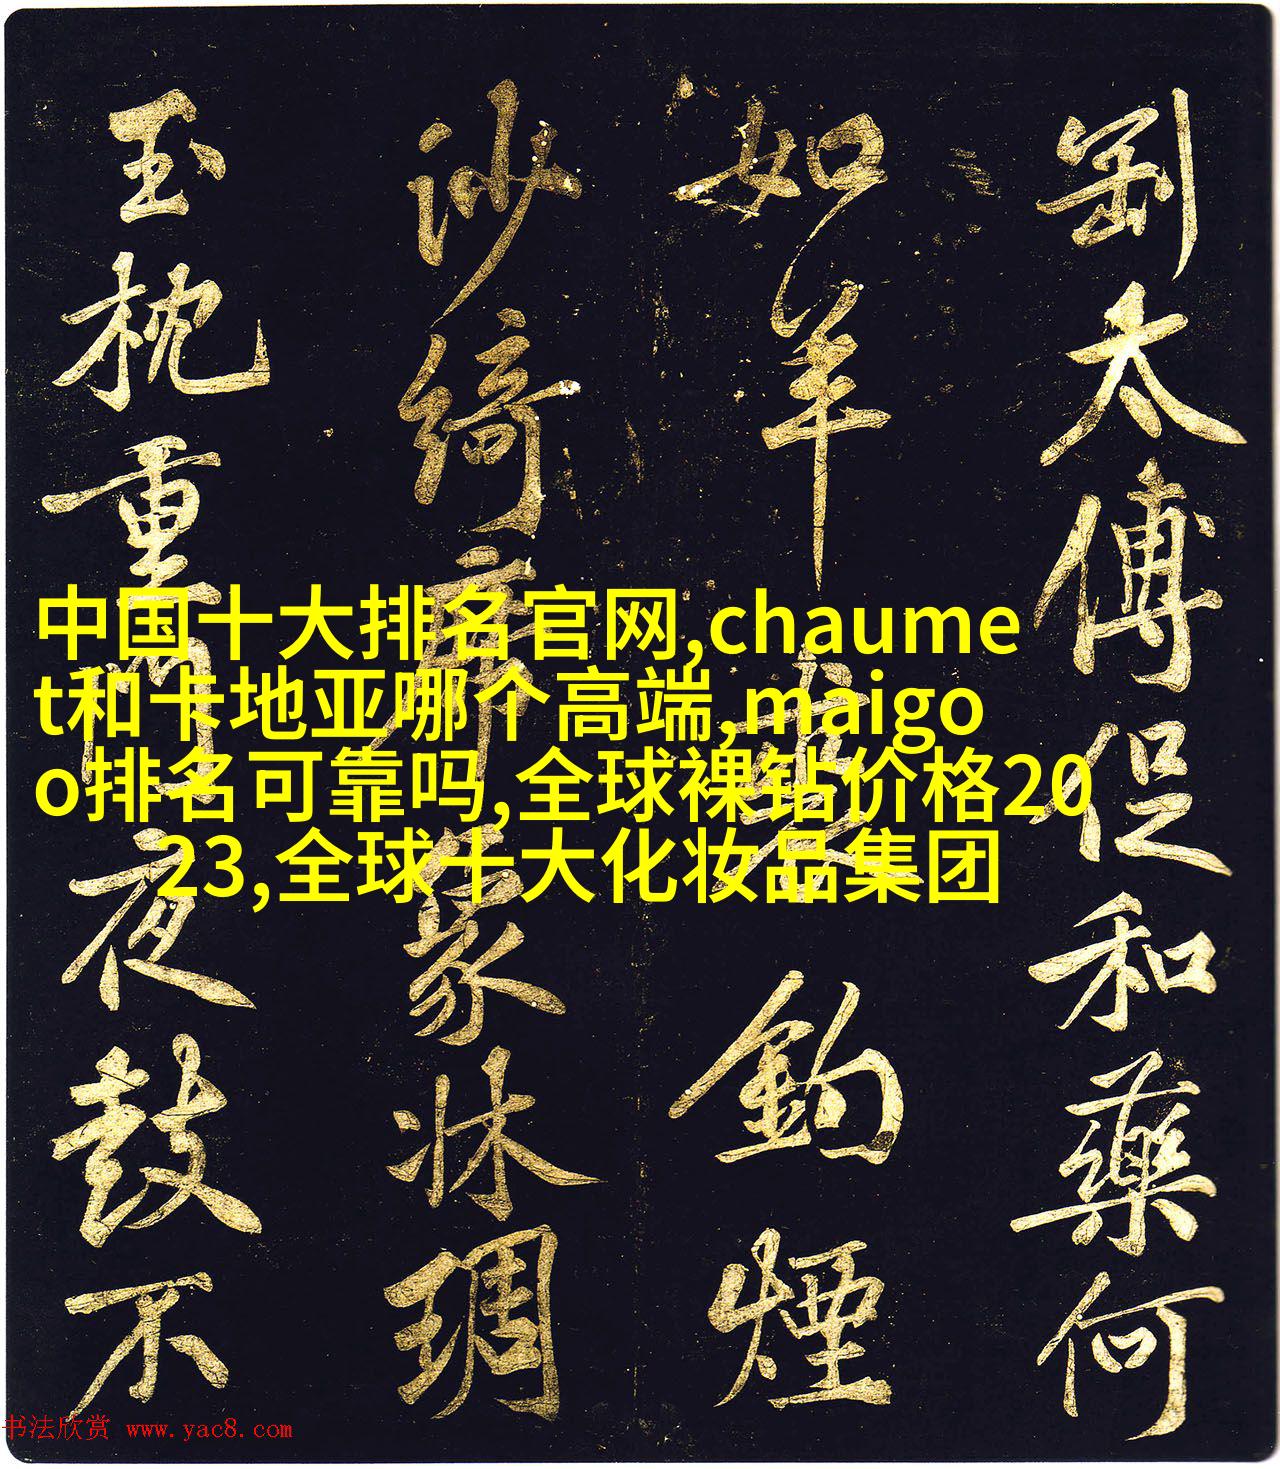 太傅促和藥何
如羊
煙
綺席篆牀琱
玉枕重門夜鼓不
中国十大排名官网,chaume
t和卡地亚哪个高端,maigo
o排名可靠吗,全球裸钻价格20
23,全球十大化妆品集团
书法欣赏 www.yac8.com